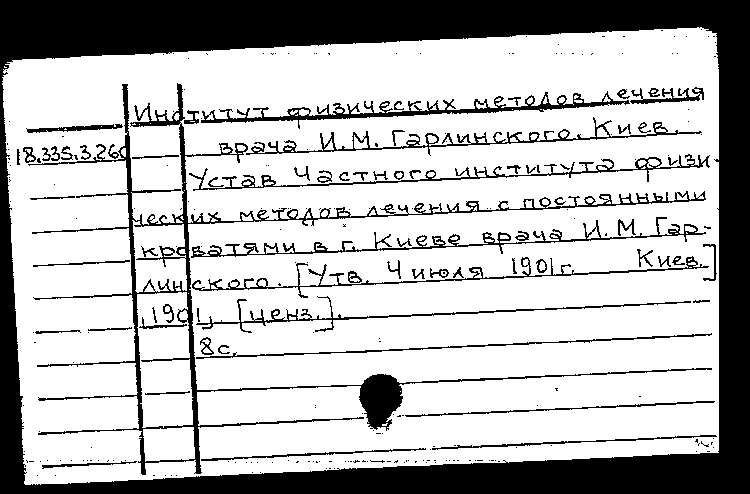 Институт физических методов лечения
18.335.3.260 врача И.М. Гарлинского. Киев.
Устав Частного института физи-
ческих методов лечения с постоянными
кроватями в г. Киеве врача И.М. Гар-
линского. [Утв. 4 июля 1901 г. Киев.]
1901, [ценз.].
8 с.